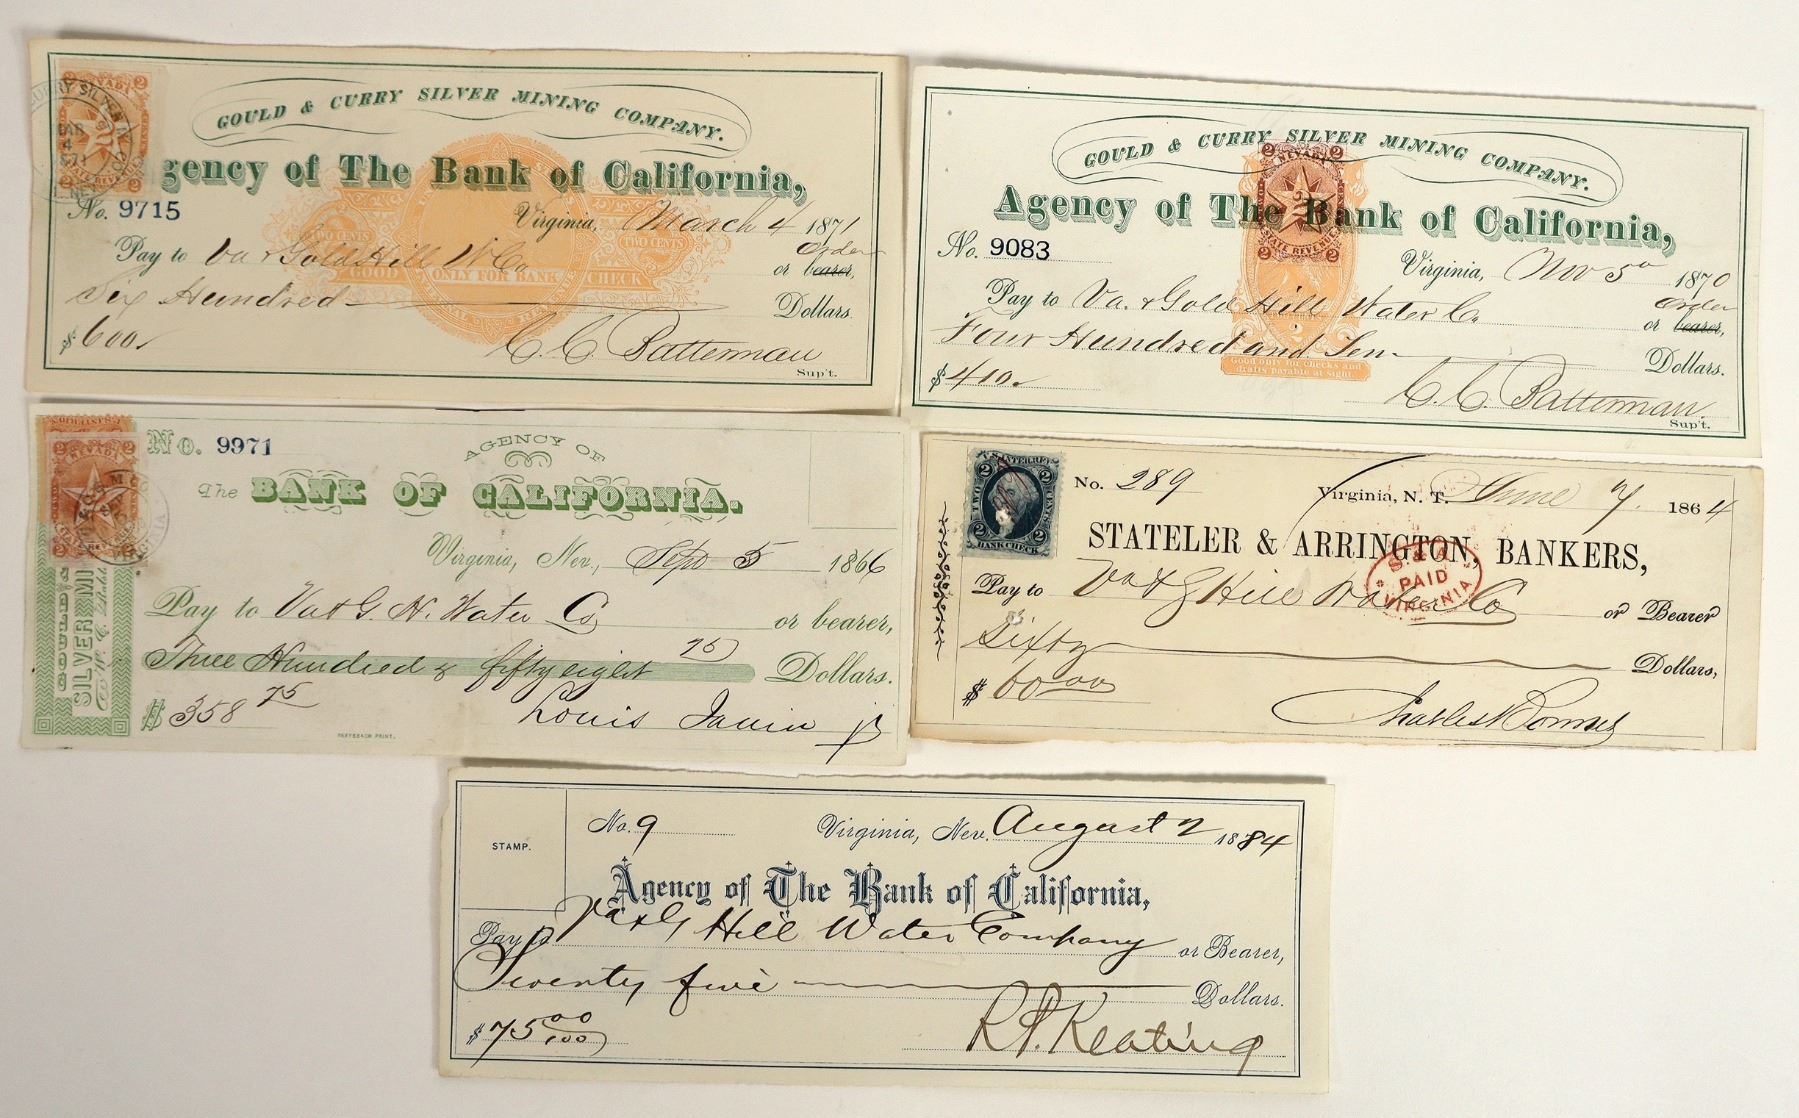 GOULD & CURRY SILVER MINING COMPANY.
gency of The Bank of California,
No. 9715
Virginia, March 4 1871
Pay to Va & Gold Hill W Co
Order
or bearer,
Six Hundred
Dollars.
$ 600.
C. C. Batterman
Sup't.
2 NEVADA 2
MAR
4
1871
TWO CENTS
TWO CENTS
GOOD ONLY FOR BANK CHECK
GOULD & CURRY SILVER MINING COMPANY.
Agency of The Bank of California,
No. 9083
Virginia, Nov 5 1870
Pay to Va. & Gold Hill Water Co
Order
or bearer,
Four Hundred and Ten
Dollars.
$ 410.
C. C. Batterman.
Sup't.
2 NEVADA 2
STATE REVENUE
Good only for checks and
drafts payable at sight.
No. 9971
AGENCY OF
The BANK OF CALIFORNIA.
Virginia, Nev., Sept 5 1866
Pay to Va & G. H. Water Co
or bearer,
Three Hundred & fifty eight 75
Dollars.
$ 358 75
Louis Janin jr
2 NEVADA 2
STATE REVENUE
SILVER MI
No. 289
Virginia, N. T. June 7. 1864
STATELER & ARRINGTON, BANKERS,
Pay to Va & G Hill Water Co
or Bearer
Sixty
Dollars,
$ 60.00
U.S. INTER. REV.
TWO CENTS
BANK CHECK
S & A
PAID
VIRGINIA
STAMP.
No. 9
Virginia, Nev. August 2 1884
Agency of The Bank of California,
Pay to Va & G Hill Water Company
or Bearer,
Seventy five
Dollars.
$ 75.00
R. P. Keating